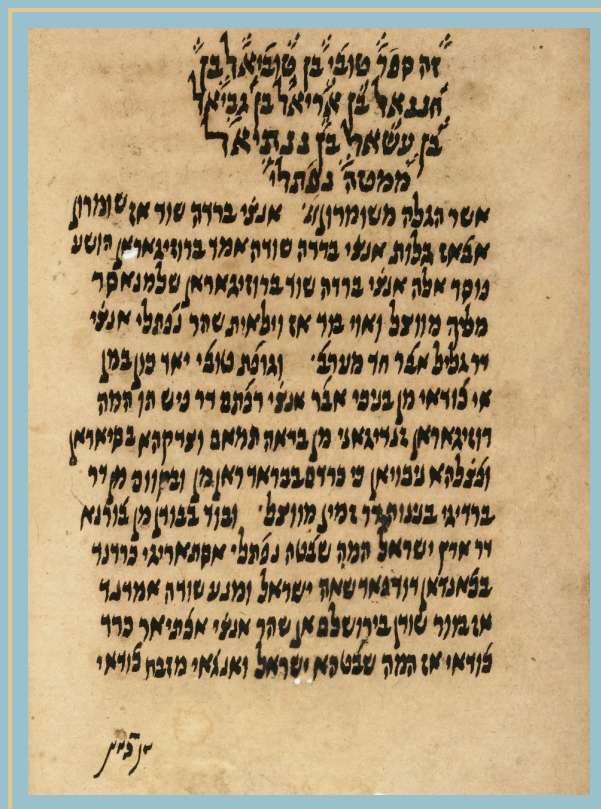 זה ספר טובי בן טוביאל בן
חננאל בן אריאל בן גביאל
בן עשאל בן ננתיאל
ממטה נפתלי
אשר הגלה משומרון אנצי ברדה שוד אז שומרון
אבאז גלות אנצי ברדה שודה אמד ברוזיגאראן הושע
אלה אנצי ברדה שוד ברוזיגאראן שלמנאסר
מליך מווצל ואוי בוד אז וילאית שהר נפתלי אנצי
דר גליל אבר חד מערב וגופת טובי יאד כון במן
אי כודאי מן אבר אנצי רפתם דר פיש תו המה
רוזיגאראן זנדיגאני מן בראה תמאם וצדקהא בסיאראן
ופצלהא ניכויאן כי כרדם בבראדראן מן ובקוום מן דר
ברדיגי דר זמין מווצל ובוד בבודן מן בורנא
דר ארץ ישראל המה שבטה נפתלי אסתאריגי כרדנד
שאה ישראל ומנע שודה אמדנד
אז שודן בירושלם אן שהר אנצי אכתיאר כרד
כודאי אז המה שבטהא ישראל ואנגאי מזבח כודאי